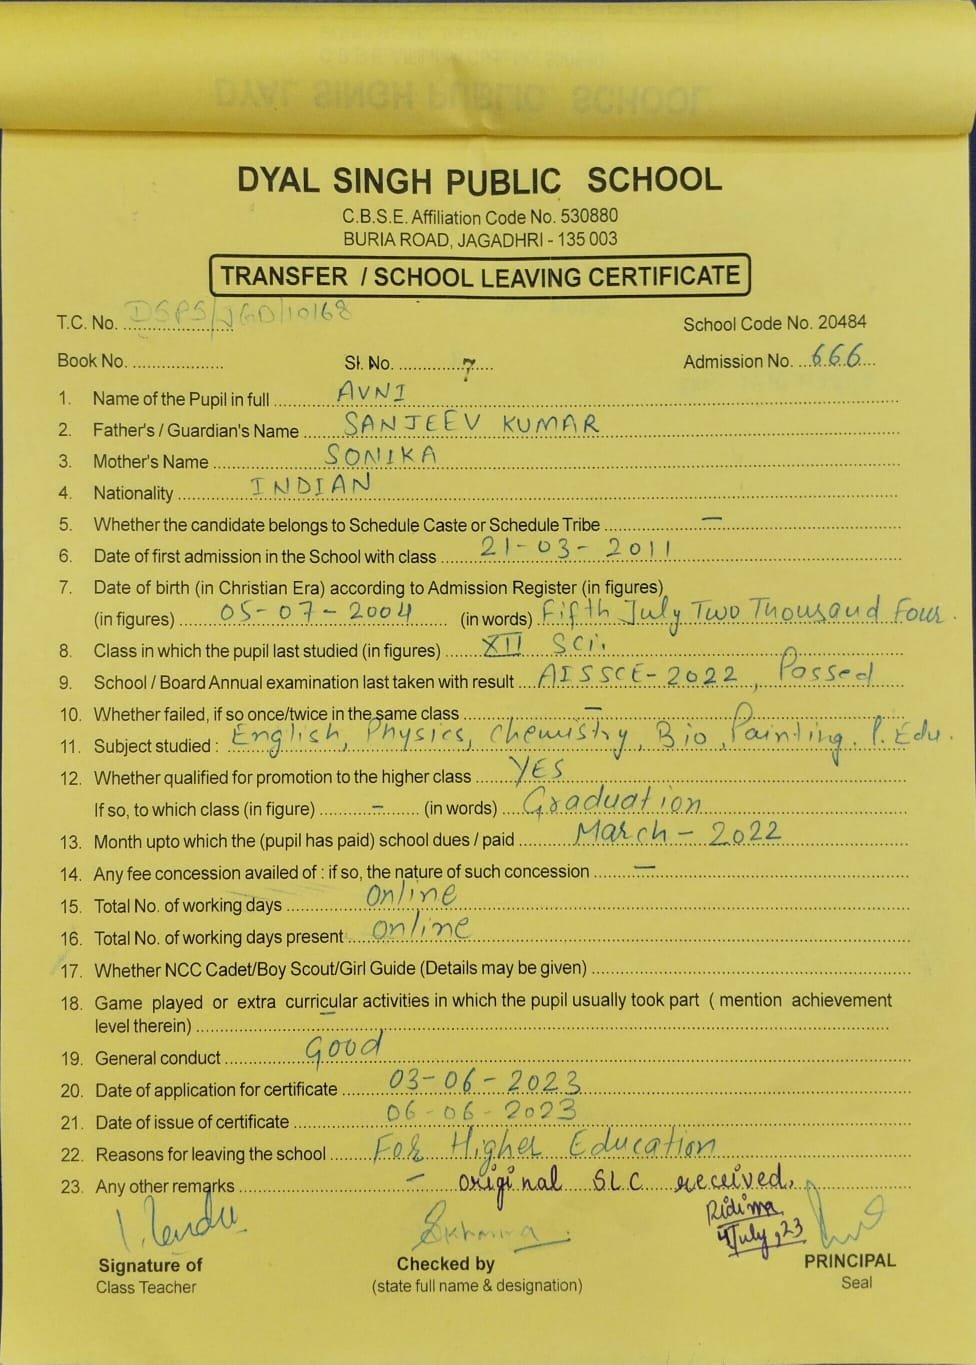 DYAL SINGH PUBLIC SCHOOL
C.B.S.E. Affiliation Code No. 530880
BURIA ROAD, JAGADHRI - 135 003
TRANSFER / SCHOOL LEAVING CERTIFICATE
T.C. No. DSPS/JGD/10168
School Code No. 20484
Book No. .................. Sl. No. .............7.... Admission No. ...666...
1. Name of the Pupil in full ........ AVNI
2. Father's / Guardian's Name ...... SANJEEV KUMAR
3. Mother's Name ........ SONIKA
4. Nationality ........ INDIAN
5. Whether the candidate belongs to Schedule Caste or Schedule Tribe ........ –
6. Date of first admission in the School with class ...... 21-03-2011
7. Date of birth (in Christian Era) according to Admission Register (in figures)
(in figures) ...... 05-07-2004 (in words) Fifth July Two Thousand Four.
8. Class in which the pupil last studied (in figures) ...... XII Sci.
9. School / Board Annual examination last taken with result ... AISSCE-2022, Passed
10. Whether failed, if so once/twice in the same class ........ –
11. Subject studied : English, Physics, Chemistry, Bio, Painting, P. Edu.
12. Whether qualified for promotion to the higher class ...... YES
If so, to which class (in figure) ........ – ...... (in words) ... Graduation
13. Month upto which the (pupil has paid) school dues / paid ...... March - 2022
14. Any fee concession availed of : if so, the nature of such concession ...... –
15. Total No. of working days ........ Online
16. Total No. of working days present ...... Online
17. Whether NCC Cadet/Boy Scout/Girl Guide (Details may be given) ........
18. Game played or extra curricular activities in which the pupil usually took part ( mention achievement
level therein) ........ –
19. General conduct ........ Good
20. Date of application for certificate ...... 03-06-2023
21. Date of issue of certificate ...... 06-06-2023
22. Reasons for leaving the school ...... For Higher Education
23. Any other remarks ........ – original SLC received.
Ridima
4 July, 23
Signature of Checked by PRINCIPAL
Class Teacher (state full name & designation) Seal